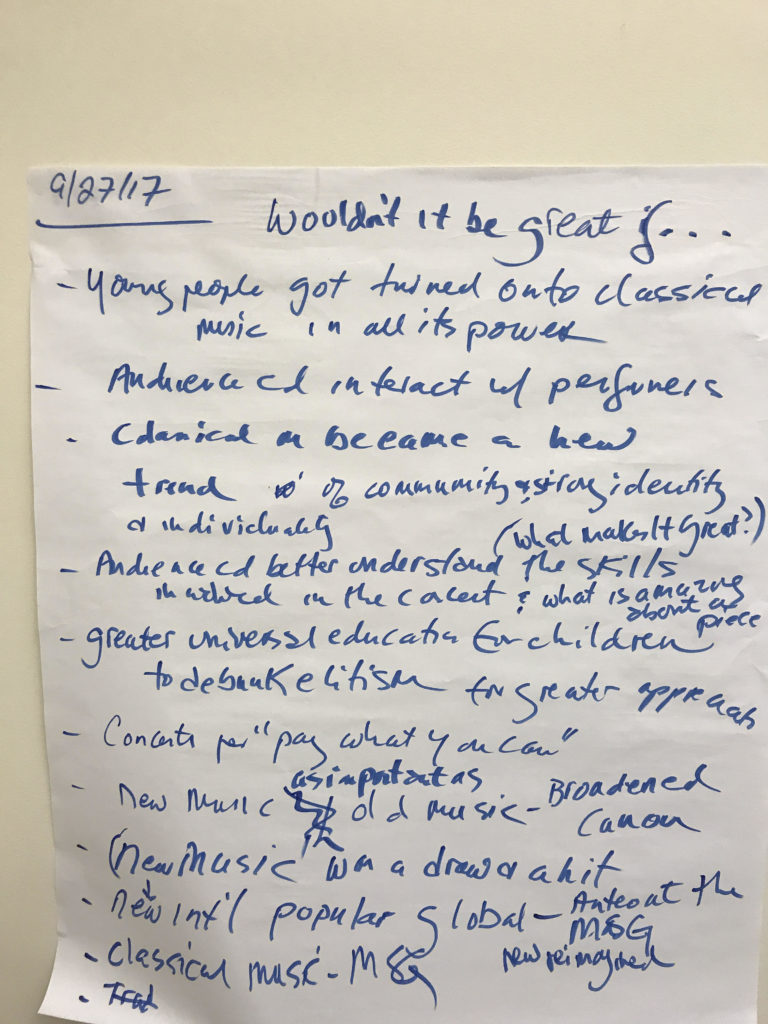 9/27/17
Wouldn't it be great if...
- Young people got turned onto classical
music in all its power
- Audience cd interact w/ performers
- Classical m became a new
trend of community & strong identity
& individuality
(What makes It Great?)
- Audience cd better understand the skills
involved in the concert & what is amazing
about a piece
- greater universal education for children
to debunk elitism for greater
- Concerts per "pay what you can"
- New Music as important as old music - Broadened
Canon
- (New Music was a draw & a hit
- New Int'l popular global - at the
MSG
new reimagined
- Classical music - MSG